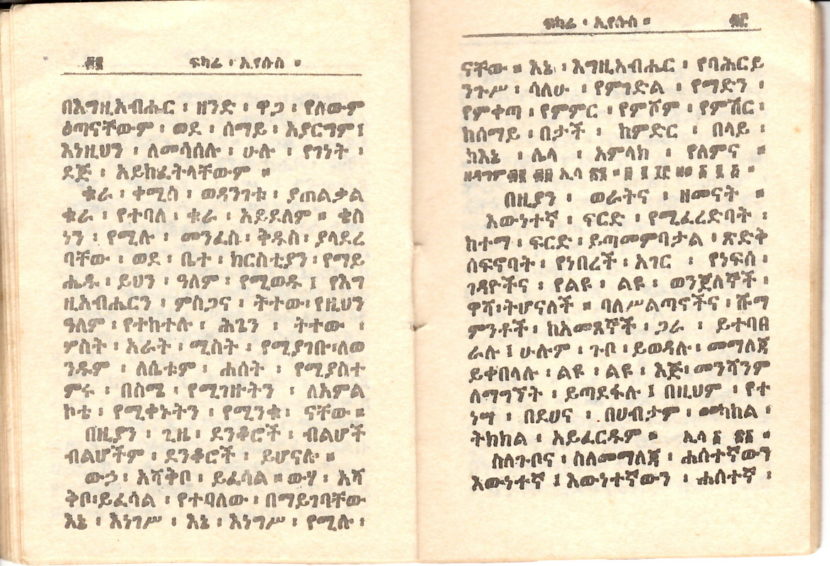 ፳፪ ፍካሬ ፡ ኢየሱስ ።
በእግዚአብሔር ፡ ዘንድ ፡ ዋጋ ፡ የለውም
ዕጣናቸውም ፡ ወደ ፡ ሰማይ ፡ አያርግም ፤
እነዚህን ፡ ለመሳሰሉ ፡ ሁሉ ፡ የገነት ፡
ደጅ ፡ አይከፈትላቸውም ።
ቁራ ፡ ቀሚስ ፡ ወዳንገቱ ፡ ያጠልቃል
ቁራ ፡ የተባለ ፡ ቁራ ፡ አይደለም ። ቄስ
ነን ፡ የሚሉ ፡ መንፈስ ፡ ቅዱስ ፡ ያላደረ
ባቸው ፡ ወደ ፡ ቤተ ፡ ክርስቲያን ፡ የማይ
ሔዱ ፡ ይህን ፡ ዓለም ፡ የሚወዱ ፤ የእግ
ዚአብሔርን ፡ ምስጋና ፡ ትተው፡የዚህን
ዓለም ፡ የተከተሉ ፡ ሕጌን ፡ ትተው ፡
ሦስት ፡ አራት ፡ ሚስት ፡ የሚያገቡ፡ለወ
ንዱም ፡ ለሴቱም ፡ ሐሰት ፡ የሚያስተ
ምሩ ፡ በስሜ ፡ የሚገዙትን ፡ ለአምል
ኮቴ ፡ የሚቀኑትን ፡ የሚንቁ፡ ናቸው ።
በዚያን ፡ ጊዜ ፡ ደንቆሮች ፡ ብልሆች
ብልሆችም ፡ ደንቆሮች ፡ ይሆናሉ ።
ውኃ ፡ እሻቅቦ ፡ ይፈሳል ። ውሃ ፡ እሻ
ቅቦ፡ይፈሳል ፡ የተባለው ፡ በማይገባቸው
እኔ ፡ እነግሥ ፡ እኔ ፡ እነግሥ ፡ የሚሉ ፡
ፍካሬ ፡ ኢየሱስ ።
ናቸው ። እኔ ፡ እግዚአብሔር ፡ የባሕርይ
ንጉሥ ፡ ሳለሁ ፡ የምገድል ፡ የማድን ፡
የምቀጣ ፡ የምምር ፡ የምሾም ፡ የምሽር ፡
ከሰማይ ፡ በታች ፡ ከምድር ፡ በላይ ፡
ከእኔ ፡ ሌላ ፡ አምላክ ፡ የለምና ።
በዚያን ፡ ወራትና ፡ ዘመናት ።
እውነተኛ ፡ ፍርድ ፡ የሚፈረድባት ፡
ከተማ ፡ ፍርድ ፡ ይጣመምባታል ፡ ጽድቅ
ሰፍኖባት ፡ የነበረች ፡ አገር ፡ የነፍሰ ፡
ገዳዮችና ፡ የልዩ ፡ ልዩ ፡ ወንጀለኞች ፡
ዋሻ፡ትሆናለች ። ባለሥልጣኖችና ፡ ሹማ
ምንቶች ፡ ከአመጸኞች ፡ ጋራ ፡ ይተባበ
ራሉ ፤ ሁሉም ፡ ጉቦ ፡ ይወዳሉ ፡ መማለጃ
ይቀበላሉ ፡ ልዩ ፡ ልዩ ፡ እጅ፡ መንሻንም
ለማግኘት ፡ ይጣደፋሉ ፤ በዚህም ፡ የተ
ነሣ ፡ በደሀና ፡ በሀብታም ፡ መካከል ፡
ትክክል ፡ አይፈርዱም ።
ስለጉቦና ፡ ስለመማለጃ ፡ ሐሰተኛውን
እውነተኛ ፤ እውነተኛውን ፡ ሐሰተኛ ፡